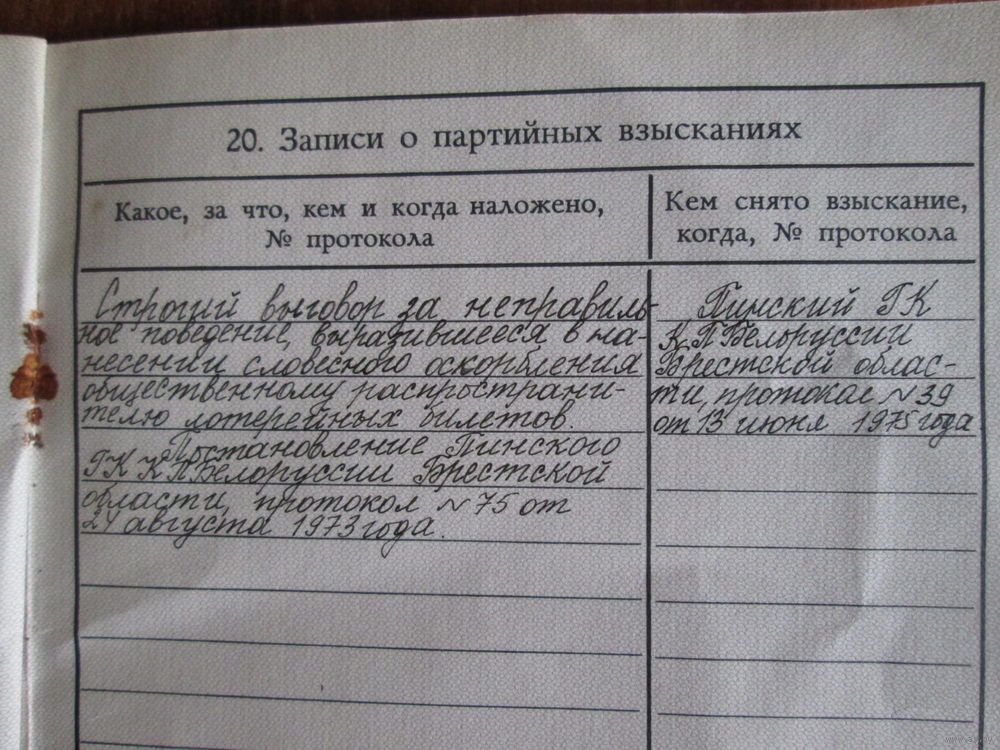 20. Записи о партийных взысканиях
Какое, за что, кем и когда наложено,
№ протокола
Кем снято взыскание,
когда, № протокола
Строгий выговор за неправиль-
ное поведение, выразившееся в на-
несении словесного оскорбления
общественному распространи-
телю лотерейных билетов.
Постановление Пинского
ГК КПБелоруссии Брестской
области, протокол №75 от
24 августа 1973 года.
Пинский ГК
КПБелоруссии
Брестской облас-
ти, протокол №39
от 13 июня 1975 года